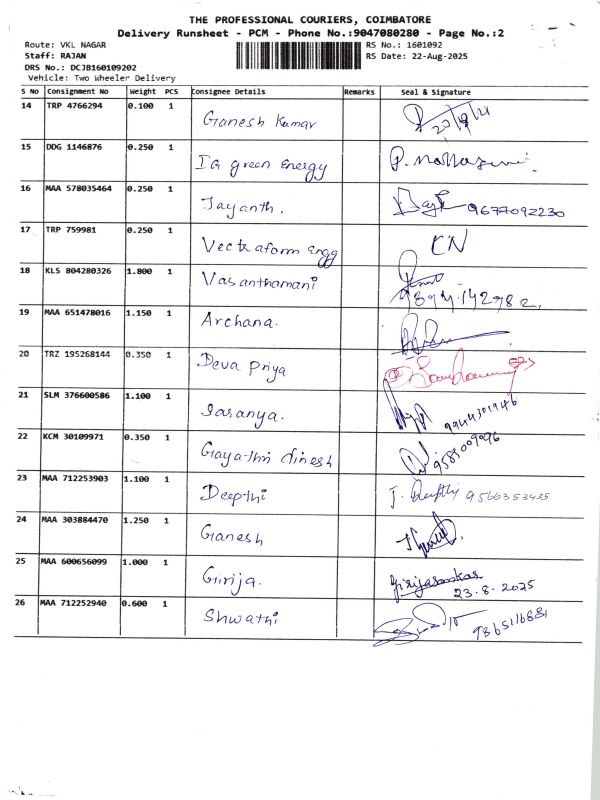 THE PROFESSIONAL COURIERS, COIMBATORE
Delivery Runsheet - PCM - Phone No.:9047080280 - Page No.:2
Route: VKL NAGAR RS No.: 1601092
Staff: RAJAN RS Date: 22-Aug-2025
DRS No.: DCJB160109202
Vehicle: Two Wheeler Delivery
S No Consignment No Weight PCS Consignee Details Remarks Seal & Signature
14 TRP 4766294 0.100 1 Ganesh Kumar
15 DDG 1146876 0.250 1 IG green Energy
16 MAA 578035464 0.250 1 Jayanth. 9677092230
17 TRP 759981 0.250 1 Vectraform Engg KN
18 KLS 804280326 1.800 1 Vasanthamani 9894.142982.
19 MAA 651478016 1.150 1 Archana.
20 TRZ 195268144 0.350 1 Deva priya
21 SLM 376600586 1.100 1 Saranya. 9944301946
22 KCM 30109971 0.350 1 Gayathri dinesh 9585009096
23 MAA 712253903 1.100 1 Deepthi J. Deepthi 9566353435
24 MAA 303884470 1.250 1 Ganesh
25 MAA 600656099 1.000 1 Girija. Girijasankar
23.8.2025
26 MAA 712252940 0.600 1 Shwathi 9865116881